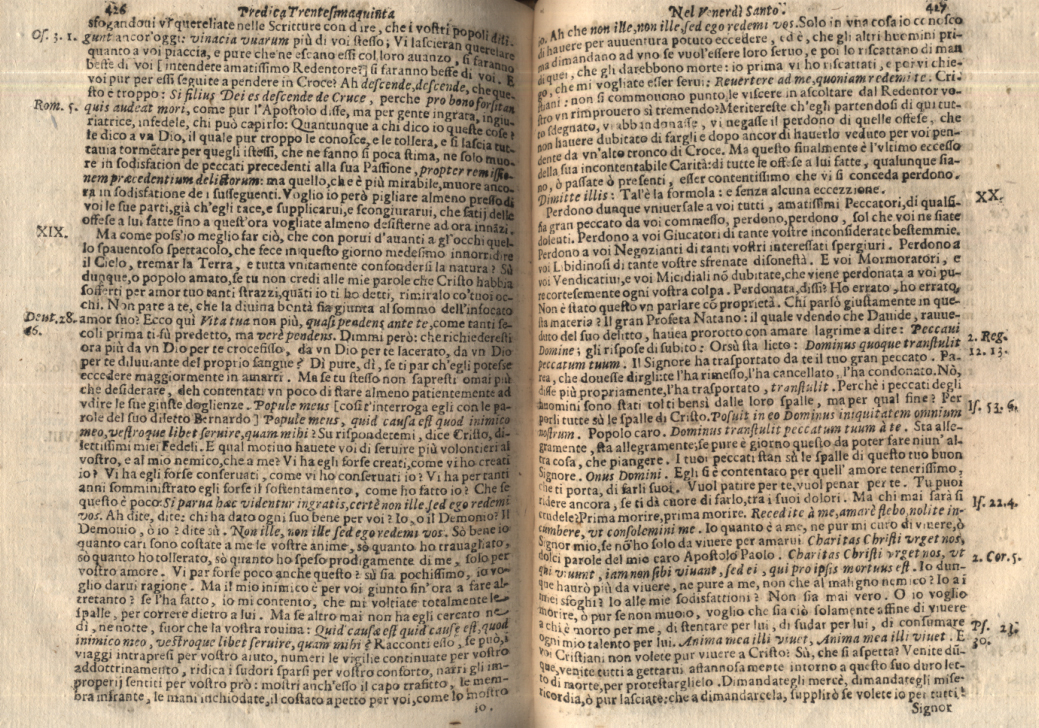 426 Predica Trentesimaquinta
sfogandoni vi quereliate nelle Scritture con dire, che i vostri popoli diti-
Os. 3. 1. gunt ancor'oggi: vinacia vuarum più di voi stesso; Vi lascieran querelare
quanto a voi piaccia, e pure che n'escano essi col loro auanzo, si faranno
beffe di voi [intendete amatissimo Redentore?] si faranno beffe di voi. E
voi pur per essi seguite a pendere in Croce? Ah descende, descende, che que-
sto e troppo: Si filius Dei es descende de Cruce, perche pro bono forsitan
Rom. 5. quis audeat mori, come pur l'Apostolo disse, ma per gente ingrata, ingiu-
riatrice, infedele, chi può capirlo? Quantunque a chi dico io queste cose?
le dico a vn Dio, il quale pur troppo le conosce, e le tollera, e si lascia tut-
tauia tormẽtare per quegli istessi, che ne fanno si poca stima, ne solo muo-
re in sodisfation de peccati precedenti alla sua Passione, propter remissio-
nem præcedentium delictorum: ma quello, che è più mirabile, muore anco-
ra in sodisfatione de i susseguenti. Voglio io però pigliare almeno presso di
voi le sue parti, già ch'egli tace, e supplicarui, e scongiurarui, che satij delle
offese a lui fatte sino a quest'ora vogliate almeno desisterne ad ora innãzi.
XIX. Ma come poss'io meglio far ciò, che con porui d'auanti a gl'occhi quel-
lo spauentoso spettacolo, che fece in questo giorno medesimo innorridire
il Cielo, tremar la Terra, e tutta vnitamente confondersi la natura? Sù
dunque, o popolo amato, se tu non credi alle mie parole che Cristo habbia
sofferti per amor tuo tanti strazzi, quãti io ti ho detti, rimiralo co'tuoi oc-
chi. Non pare a te, che la diuina bontà sia giunta al sommo dell'infocato
Deut. 28. amor suo? Ecco qui Vita tua non più, quasi pendens ante te, come tanti se-
66. coli prima ti fù predetto, ma verè pendens. Dimmi però: che richiederesti
ora più da vn Dio per te crocefisso, da vn Dio per te lacerato, da vn Dio
per te diluuiante del proprio sangue? Di pure, dì, se ti par ch'egli potesse
eccedere maggiormente in amarti. Ma se tu stesso non sapresti omai più
che desiderare, deh contentati vn poco di stare almeno patientemente ad
vdire le sue giuste doglienze. Popule meus [così t'interroga egli con le pa-
role del suo diletto Bernardo] Popule meus, quid causa est quod inimico
meo, vestroque libet seruire, quam mihi? Su rispondetemi, dice Cristo, di-
lettissimi miei Fedeli. E qual motiuo hauete voi di seruire più volontieri al
vostro, e al mio nemico, che a me? Vi ha egli forse creati, come vi ho creati
io? Vi ha egli forse conseruati, come vi ho conseruati io? Vi ha per tanti
anni somministrato egli forse il sostentamento, come ho fatto io? Che se
questo è poco: Si parua hæc videntur ingratis, certè non ille, sed ego redemi
vos. Ah dite, dite: chi ha dato ogni suo bene per voi? Io, o il Demonio? Il
Demonio, ò io? dite sù. Non ille, non ille, sed ego redemi vos. Sò bene io
quanto cari sono costate a me le vostre anime, sò quanto ho trauagliato,
sò quanto ho tollerato, sò quanto ho speso prodigamente di me, solo per
vostro amore. Vi par forse poco anche questo? sù sia pochissimo, io vo-
glio darui ragione. Ma il mio inimico è per voi giunto sin'ora a fare al-
tretanto? se l'ha fatto, io mi contento, che mi voltiate totalmente le
spalle, per correre dietro a lui. Ma se altro mai non ha egli cercato ne
dì, ne notte, fuor che la vostra rouina: Quid causæ est quid causæ est, quod
inimico meo, vestroque libet seruire, quam mihi? Racconti esso, se può, i
viaggi intrapresi per vostro aiuto, numeri le vigilie continuate per vostro
addottrinamento, ridica i sudori sparsi per vostro conforto, narri gli im-
properij sentiti per vostro prò: mostri anch'esso il capo trafitto, le mem-
bra infrante, le mani inchiodate, il costato aperto per voi, come lo mostro
io.
Nel Venerdì Santo. 427
io. Ah che non ille, non ille, sed ego redemi vos. Solo in vna cosa io conosco
di hauere per auuentura potuto eccedere, ed è, che gli altri huomini pri-
ma dimandano ad vno se vuol'essere loro seruo, e poi lo riscattano di man
di quei, che gli darebbono morte: io prima vi ho riscattati, e poi vi chie-
go, che mi vogliate esser serui: Reuertere ad me, quoniam redemi te. Cri-
stiani: non si commuouono punto le viscere in ascoltare dal Redentor vo-
stro vn rimprouero sì tremendo? Meritereste ch'egli partendosi di qui tut-
to sdegnato, vi abbandonasse, vi negasse il perdono di quelle offese, che
non hauere dubitato di fargli e dopo ancor di hauerlo veduto per voi pen-
dente da vn'alto tronco di Croce. Ma questo finalmente è l'vltimo eccesso
della sua incontentabile Carità: di tutte le offese a lui fatte, qualunque sia-
no, ò passate ò presenti, esser contentissimo che vi si conceda perdono.
Dimitte illis: Tal'è la formola: e senza alcuna eccezzione.
Perdono dunque vniuersale a voi tutti, amatissimi Peccatori, di qualsi- XX.
sia gran peccato da voi commesso, perdono, perdono, sol che voi ne siate
dolenti. Perdono a voi Giucatori di tante vostre inconsiderate bestemmie.
Perdono a voi Negozianti di tanti vostri interessati spergiuri. Perdono a
voi Libidinosi di tante vostre sfrenate disonestà. E voi Mormoratori, e
voi Vendicatiui, e voi Micidiali nõ dubitate, che viene perdonata a voi pu-
re cortesemente ogni vostra colpa. Perdonata, dissi? Ho errato, ho errato.
Non è stato questo vn parlare cõ proprietà. Chi parlò giustamente in que-
sta materia? Il gran Profeta Natano: il quale vdendo che Dauide, rauue-
duto del suo delitto, hauea prorotto con amare lagrime a dire: Peccaui
Domine; gli rispose di subito: Orsù sta lieto: Dominus quoque transtulit 2. Reg.
peccatum tuum. Il Signore ha trasportato da te il tuo gran peccato. Pa- 12. 13.
rea, che douesse dirgli: te l'ha rimesso, l'ha cancellato, l'ha condonato. Nò,
disse più propriamente, l'ha trasportato, transtulit. Perchè i peccati degli
huomini sono stati tolti bensì dalle loro spalle, ma per qual fine? Per
porli tutti sù le spalle di Cristo. Posuit in eo Dominus iniquitatem omnium Is. 53. 6.
nostrum. Popolo caro. Dominus transtulit peccatum tuum à te. Sta alle-
gramente, sta allegramente, se pure è giorno questo da poter fare niun'al-
tra cosa, che piangere. I tuoi peccati stan sù le spalle di questo tuo buon
Signore. Onus Domini. Egli si è contentato per quell' amore tenerissimo,
che ti porta, di farli suoi. Vuol patire per te, vuol penar per te. Tu puoi
ridere ancora, se ti dà cuore di farlo, tra i suoi dolori. Ma chi mai sarà sì
crudele? Prima morire, prima morire. Recedite à me, amarè flebo, nolite in- Is. 22. 4.
cumbere, vt consolemini me. Io quanto è a me, ne pur mi curo di viuere, ò
Signor mio, se nõ ho solo da viuere per amarui. Charitas Christi vrget nos,
dolci parole del mio caro Apostolo Paolo. Charitas Christi vrget nos, vt 2. Cor. 5.
qui viuunt, iam non sibi viuant, sed ei, qui pro ipsis mortuus est. Io dun-
que haurò più da viuere, ne pure a me, non che al maligno nemico? Io a i
miei sfoghi? Io alle mie sodisfattioni? Non sia mai vero. O io voglio
morire, ò pur se non muoio, voglio che sia ciò solamente affine di viuere
a chi è morto per me, di stentare per lui, di sudar per lui, di consumare Ps. 23.
ogni mio talento per lui. Anima mea illi viuet, Anima mea illi viuet. E 30.
voi Cristiani non volete pur viuere a Cristo? Sù, che si aspetta? Venite dũ-
que, venite tutti a gettarui affannosamente intorno a questo suo duro let-
to di morte, per protestarglielo. Dimandategli mercè, dimandategli mise-
ricordia, ò pur lasciate: che a dimandarcela, supplirò se volete io per tutti.
Signor